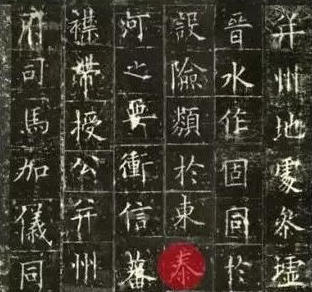 并州地處參墟
晉水作固同於
設險類於東秦
河之要衝信蕃
襟帶授公并州
府司馬加儀同